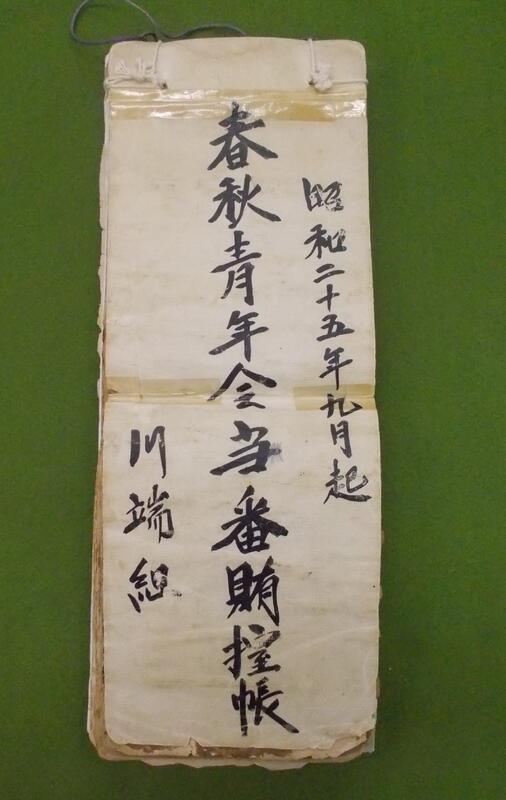 昭和二十五年九月起
春秋青年会当番賄控帳
川端組